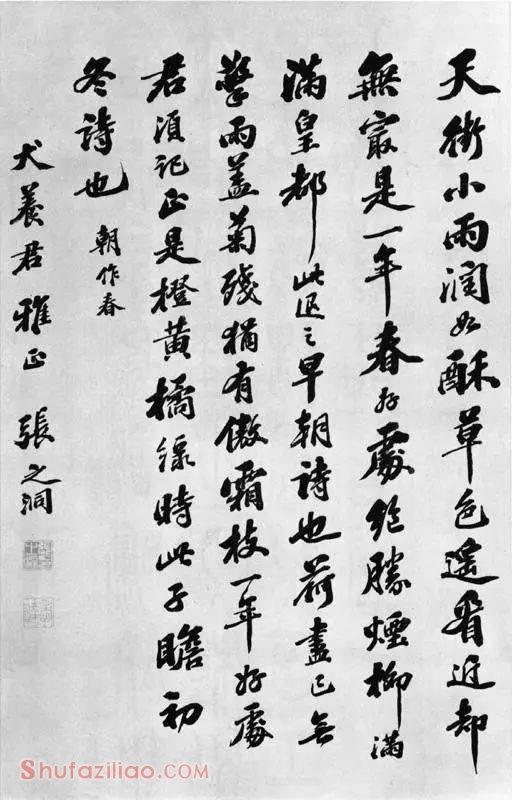 天街小雨潤如酥草色遙看近却
無最是一年春好處絕勝煙柳滿
滿皇都此退之早朝詩也荷盡已無
擎雨蓋菊殘猶有傲霜枝一年好處
君須記正是橙黃橘綠時此子瞻初
冬詩也 朝作春
犬養君雅正 張之洞
Shufaziliao.COM